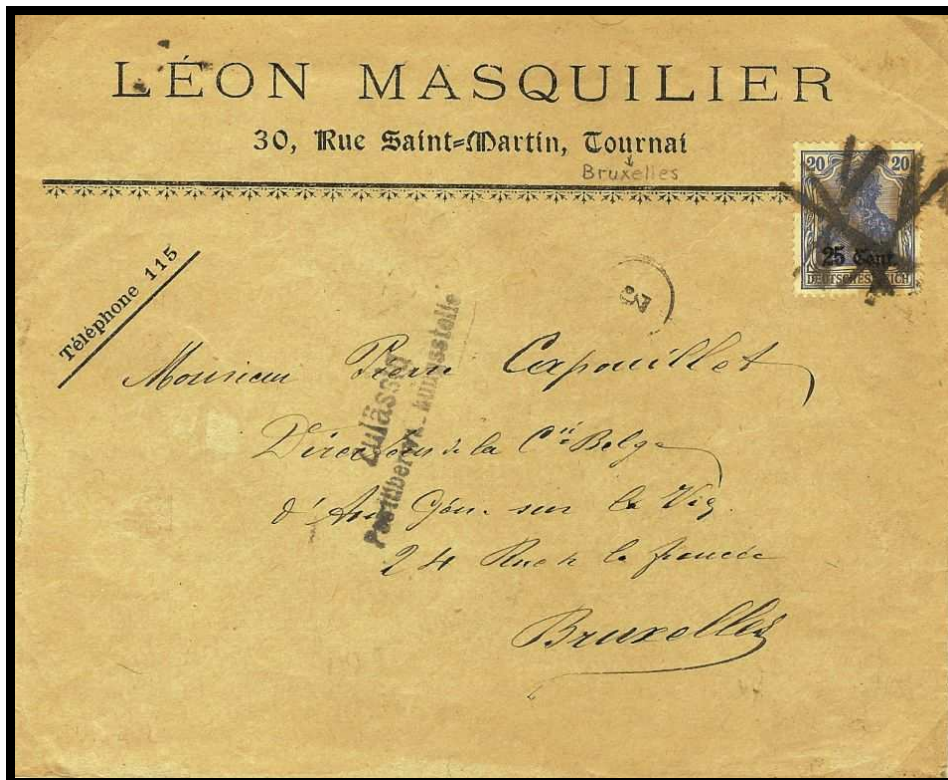 LÉON MASQUILIER
30, Rue Saint-Martin, Tournai
Bruxelles
20 20
25 Cent.
DEUTSCHES REICH
Téléphone 115
Zulässig
Monsieur Pierre Capouillet
Directeur de la Cie Belge
sur la Vie
24 Rue de la
Bruxelles